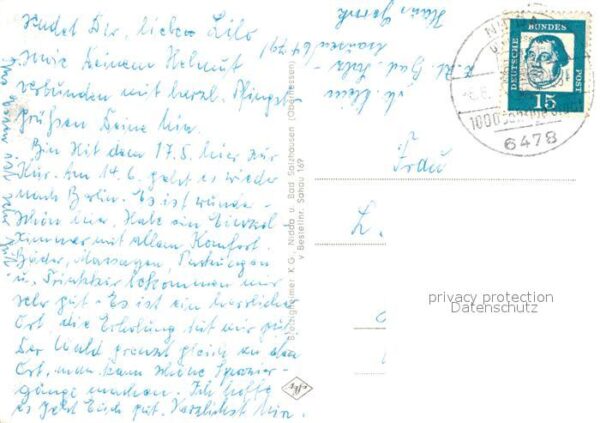 sendet Dir, liebe Lilo
und Deinem Helmut
verbunden mit herzl. Pfingst-
grüßen Deine
Bin seit dem 17.5. hier zur
Kur. Am 14.6. geht es wieder
nach Berlin. Es ist wunder-
schön hier. Habe ein Einzel-
zimmer mit allem Komfort.
Bäder, Massagen, Packungen
u. Trinkkur bekommen mir
sehr gut. Es ist ein herrlicher
Ort, die Erholung tut mir gut.
Der Wald grenzt gleich an den
Ort, man kann schöne Spazier-
gänge machen. Ich hoffe
es geht Euch gut. Herzlichst
Bad Salz-
Frau
L.
NIDDA
1000
6478
DEUTSCHE BUNDESPOST
15
Bretzigheimer K.G., Nidda u. Bad Salzhausen (Oberhessen)
Bestellnr. Sahau 169
privacy protection
Datenschutz